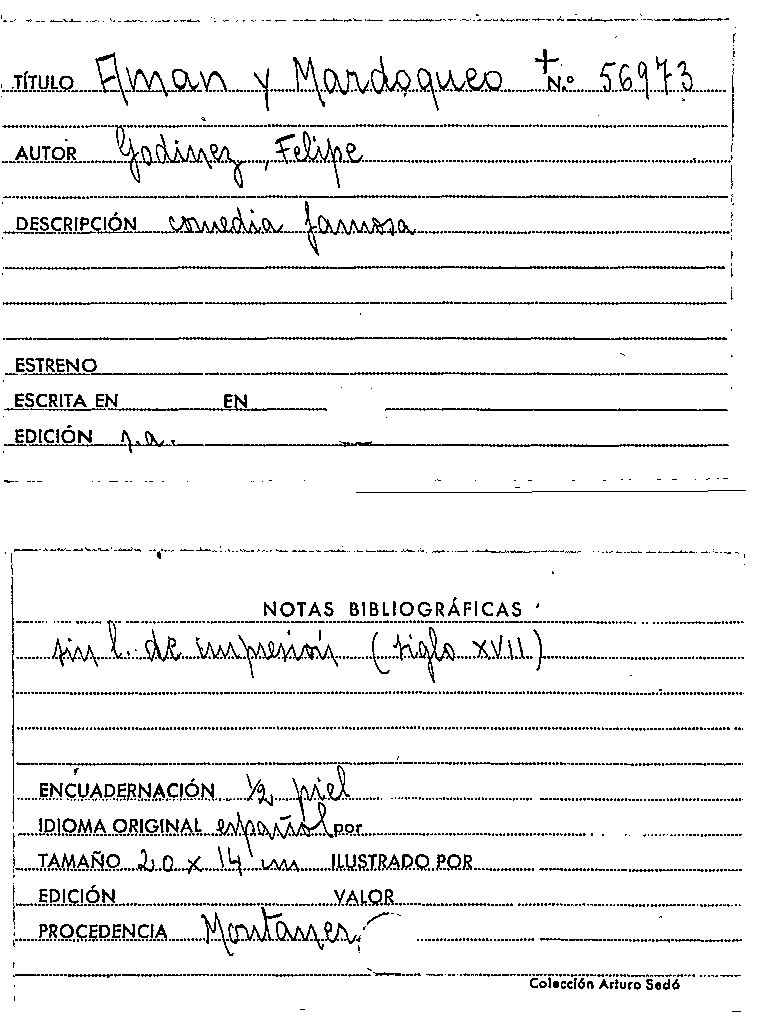 TÍTULO Aman y Mardoqueo + N.º 56973
AUTOR Godinez, Felipe
DESCRIPCIÓN comedia famosa
ESTRENO
ESCRITA EN EN
EDICIÓN s.a.
NOTAS BIBLIOGRÁFICAS
sin l. de impresión (siglo XVII)
ENCUADERNACIÓN ½ piel
IDIOMA ORIGINAL español por
TAMAÑO 20 x 14 cm ILUSTRADO POR
EDICIÓN VALOR
PROCEDENCIA Montaner
Colección Arturo Sedó